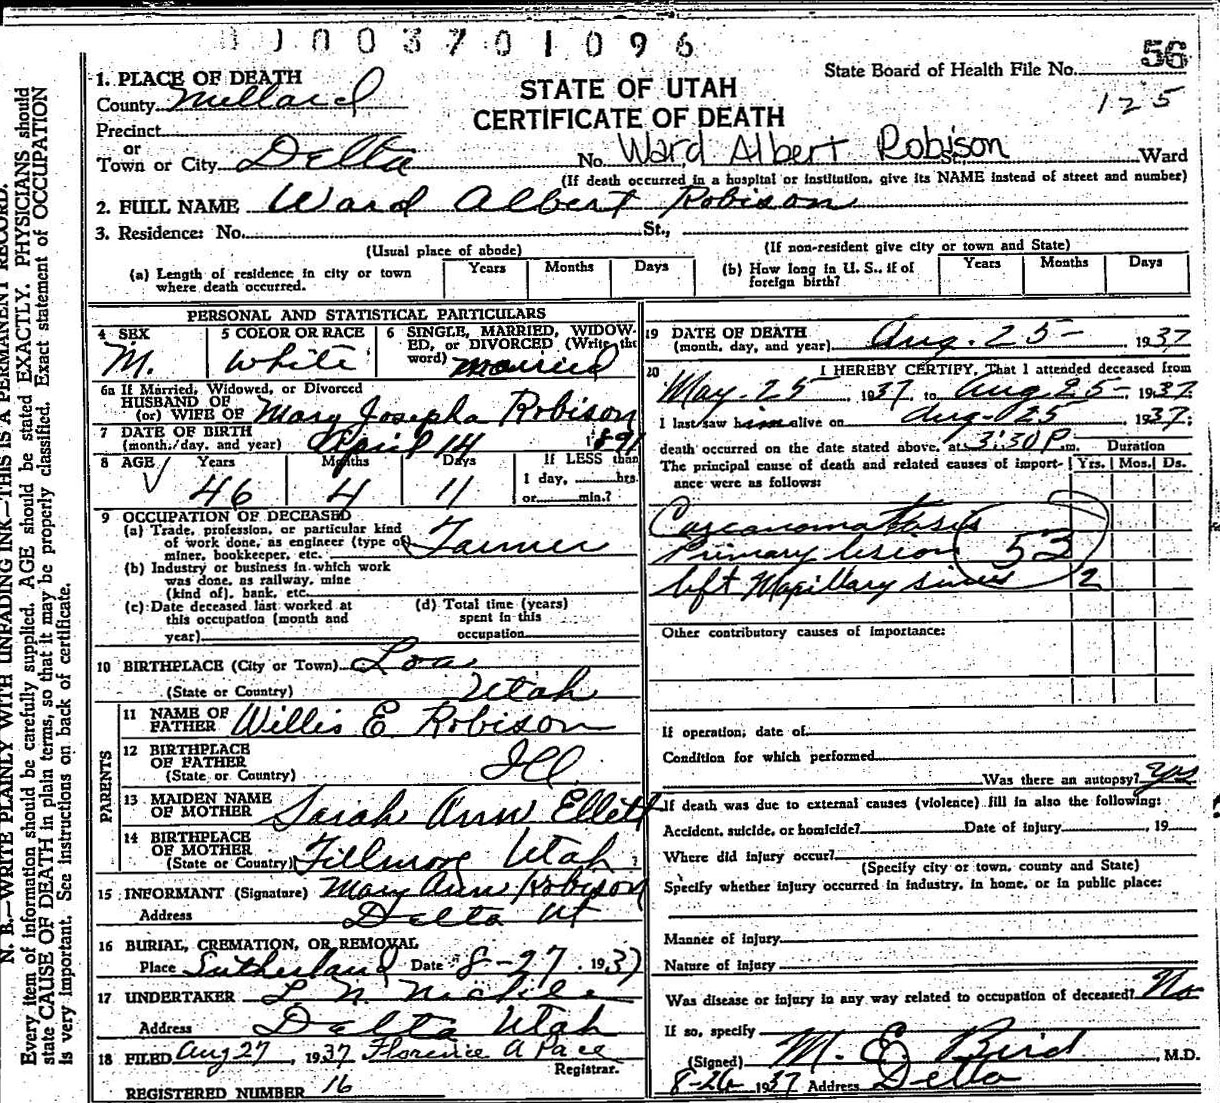 0 0 0 0 3 7 0 1 0 9 6
56
State Board of Health File No.
125
STATE OF UTAH
CERTIFICATE OF DEATH
1. PLACE OF DEATH
County Millard
Precinct
or
Town or City Delta No. Ward Albert Robison St. Ward
(If death occurred in a hospital or institution, give its NAME instead of street and number)
2. FULL NAME Ward Albert Robison
3. Residence: No. St.,
(Usual place of abode) (If non-resident give city or town and State)
(a) Length of residence in city or town where death occurred. Years Months Days
(b) How long in U. S., if of foreign birth? Years Months Days
PERSONAL AND STATISTICAL PARTICULARS
4 SEX M.
5 COLOR OR RACE White
6 SINGLE, MARRIED, WIDOWED, or DIVORCED (Write the word) married
6a If Married, Widowed, or Divorced
HUSBAND OF
(or) WIFE OF Mary Josepha Robison
7 DATE OF BIRTH
(month, day, and year) April 14 1891
8 AGE Years Months Days If LESS than
1 day, hrs.
46 4 11 or min.?
9 OCCUPATION OF DECEASED
(a) Trade, profession, or particular kind
of work done, as engineer (type of
miner, bookkeeper, etc. Farmer
(b) Industry or business in which work
was done, as railway, mine
(kind of), bank, etc.
(c) Date deceased last worked at
this occupation (month and
year)
(d) Total time (years)
spent in this
occupation
10 BIRTHPLACE (City or Town) Loa
(State or Country) Utah
PARENTS
11 NAME OF
FATHER Willis E Robison
12 BIRTHPLACE
OF FATHER
(State or Country) Ill
13 MAIDEN NAME
OF MOTHER Sarah Ann Ellett
14 BIRTHPLACE
OF MOTHER
(State or Country) Fillmore Utah ?
15 INFORMANT (Signature) Mary Ann Robison
Address Delta Ut
16 BURIAL, CREMATION, OR REMOVAL
Place Sutherland Date 8-27, 1937
17 UNDERTAKER L. N. Nickle
Address Delta Utah
18 FILED Aug 27, 1937 Florence A Pace
Registrar.
REGISTERED NUMBER 16
19 DATE OF DEATH
(month, day, and year) Aug. 25- 1937
20 I HEREBY CERTIFY, That I attended deceased from
May 25, 1937, to Aug 25-, 1937.
I last saw him alive on Aug. 25 1937:
death occurred on the date stated above, at 3:30 P.m.
The principal cause of death and related causes of importance were as follows:
Duration
Yrs. Mos. Ds.
Carcanomatosis
Primary lesion 53
left Maxillary sinus 2
Other contributory causes of importance:
If operation, date of
Condition for which performed
Was there an autopsy? Yes
If death was due to external causes (violence) fill in also the following:
Accident, suicide, or homicide? Date of injury , 19
Where did injury occur?
(Specify city or town, county and State)
Specify whether injury occurred in industry, in home, or in public place:
Manner of injury
Nature of injury
Was disease or injury in any way related to occupation of deceased? No
If so, specify
(Signed) M. E. Bird, M.D.
8-26 1937 Address Delta
N. B.—WRITE PLAINLY WITH UNFADING INK—THIS IS A PERMANENT RECORD.
Every item of information should be carefully supplied. AGE should be stated EXACTLY. PHYSICIANS should
state CAUSE OF DEATH in plain terms, so that it may be properly classified. Exact statement of OCCUPATION
is very important. See instructions on back of certificate.